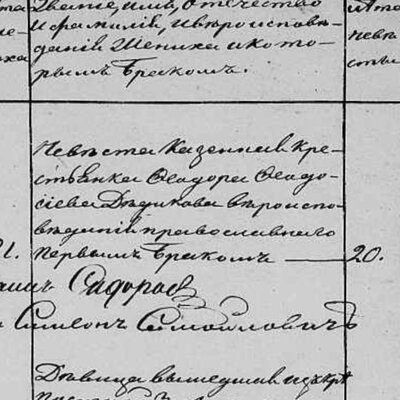 Званіе, имя, отечество
и фамилія, и вѣроисповѣ-
даніе Жениха и кото-
рымъ бракомъ.
Невѣста Казенная кре-
стьянка Ѳеодора Ѳеодо-
сіева Дѣдикова вѣроиспо-
вѣданія православнаго
первымъ бракомъ — 20.
Сидоров
Симеонъ Самойловичъ
Дѣвица вышедшая изъ крѣ